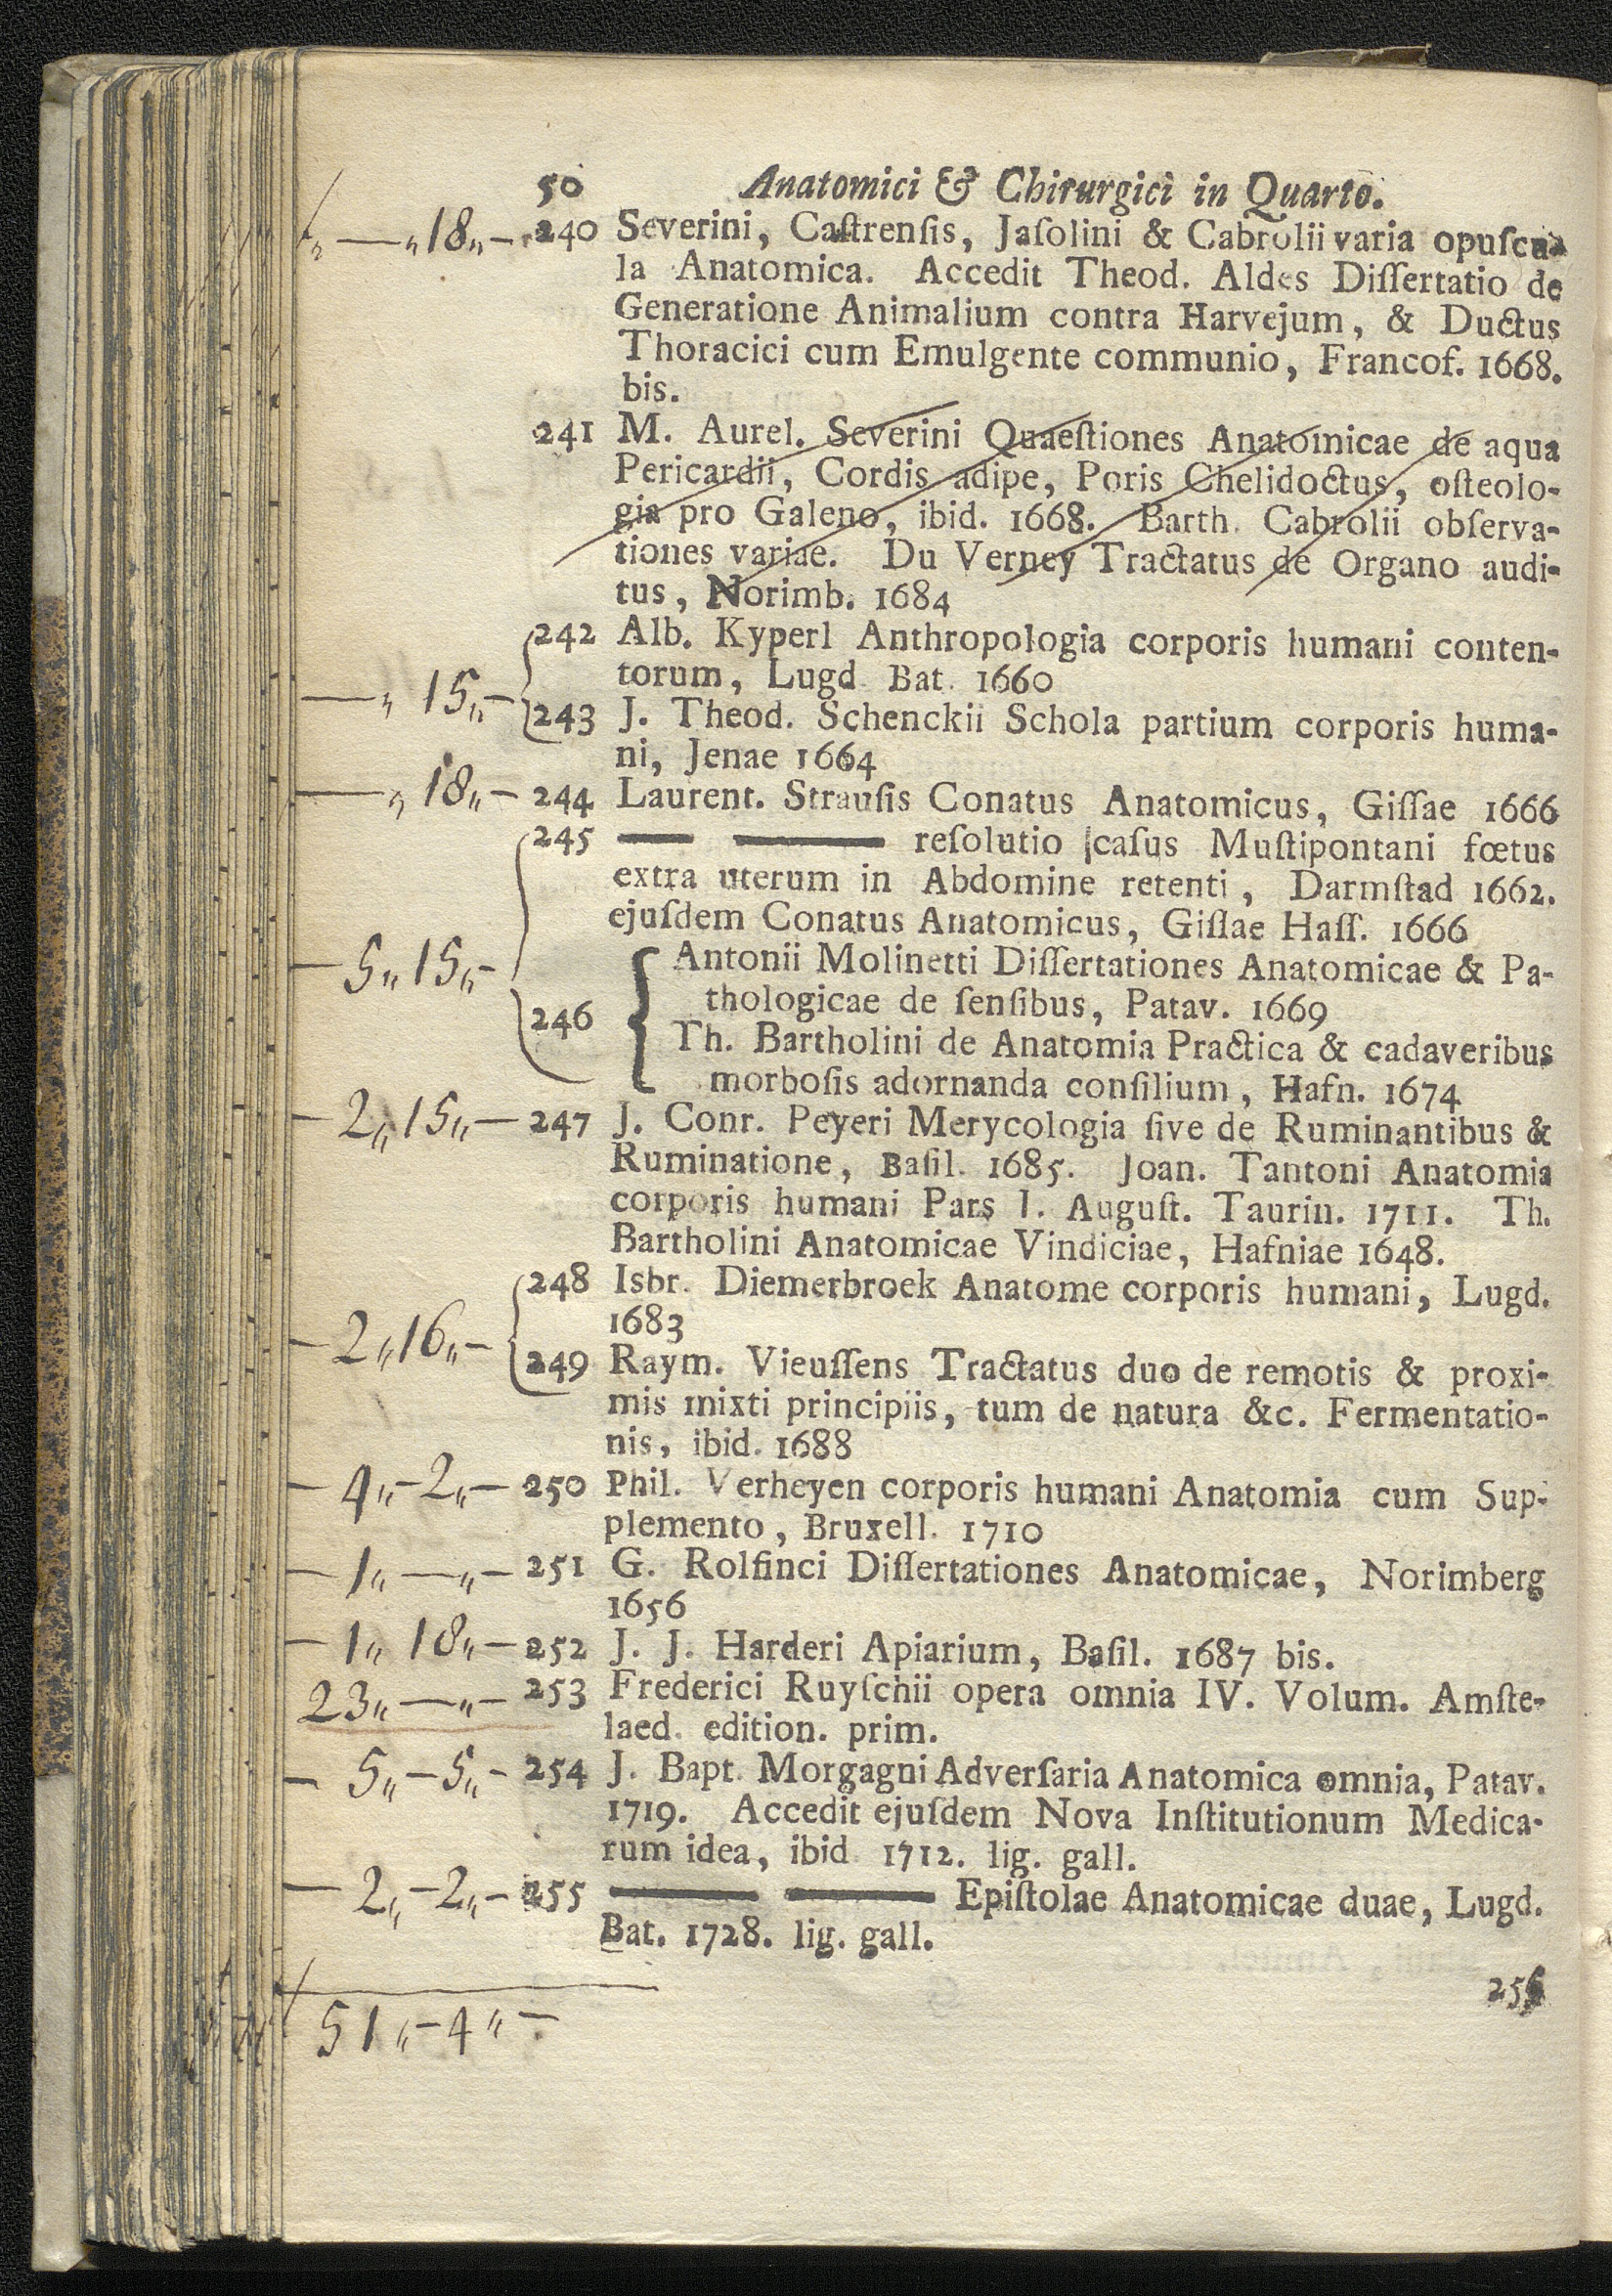 50 Anatomici & Chirurgici in Quarto.
„ — „ 18 „ — 240 Severini, Caſtrenſis, Jaſolini & Cabrolii varia opuſcu-
la Anatomica. Accedit Theod. Aldes Diſſertatio de
Generatione Animalium contra Harvejum, & Ductus
Thoracici cum Emulgente communio, Francof. 1668.
bis.
241 M. Aurel. Severini Quaeſtiones Anatomicae de aqua
Pericardii, Cordis adipe, Poris Chelidoctus, oſteolo-
gia pro Galeno, ibid. 1668. Barth. Cabrolii obſerva-
tiones variae. Du Verney Tractatus de Organo audi-
tus, Norimb. 1684
242 Alb. Kyperl Anthropologia corporis humani conten-
torum, Lugd. Bat. 1660
— „ 15 „ — 243 J. Theod. Schenckii Schola partium corporis huma-
ni, Jenae 1664
— „ 18 „ — 244 Laurent. Strauſis Conatus Anatomicus, Giſſae 1666
245 —— —— reſolutio caſus Muſtipontani fœtus
extra uterum in Abdomine retenti, Darmſtad 1662.
ejuſdem Conatus Anatomicus, Giſſae Haſſ. 1666
— 5 „ 15 „ — Antonii Molinetti Diſſertationes Anatomicae & Pa-
thologicae de ſenſibus, Patav. 1669
246 Th. Bartholini de Anatomia Practica & cadaveribus
morboſis adornanda conſilium, Hafn. 1674
— 2 „ 15 „ — 247 J. Conr. Peyeri Merycologia ſive de Ruminantibus &
Ruminatione, Baſil. 1685. Joan. Tantoni Anatomia
corporis humani Pars I. Auguſt. Taurin. 1711. Th.
Bartholini Anatomicae Vindiciae, Hafniae 1648.
248 Isbr. Diemerbroek Anatome corporis humani, Lugd.
1683
— 2 „ 16 „ — 249 Raym. Vieuſſens Tractatus duo de remotis & proxi-
mis mixti principiis, tum de natura &c. Fermentatio-
nis, ibid. 1688
— 4 „ — 2 „ — 250 Phil. Verheyen corporis humani Anatomia cum Sup-
plemento, Bruxell. 1710
— 1 „ — „ — 251 G. Rolfinci Diſſertationes Anatomicae, Norimberg
1656
— 1 „ 18 „ — 252 J. J. Harderi Apiarium, Baſil. 1687 bis.
23 „ — „ — 253 Frederici Ruyſchii opera omnia IV. Volum. Amſte-
laed. edition. prim.
— 5 „ — 5 „ — 254 J. Bapt. Morgagni Adverſaria Anatomica omnia, Patav.
1719. Accedit ejuſdem Nova Inſtitutionum Medica-
rum idea, ibid. 1712. lig. gall.
— 2 „ — 2 „ — 255 —— —— Epiſtolae Anatomicae duae, Lugd.
Bat. 1728. lig. gall.
256
51 „ — 4 „ —